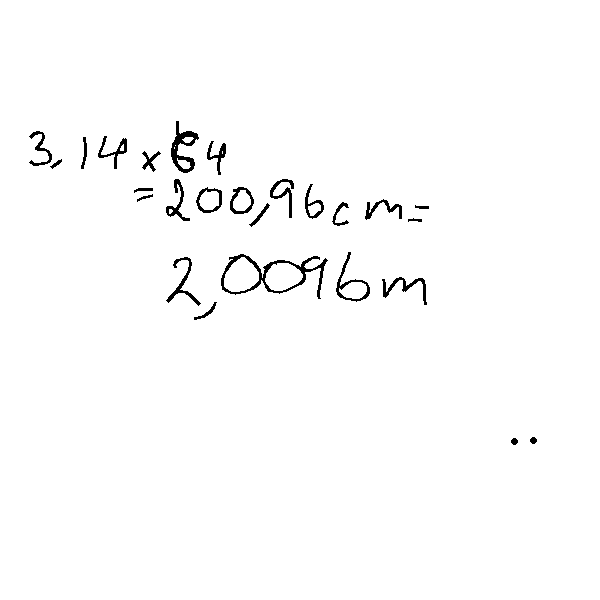 3,14 x 64
= 200,96cm =
2,0096m